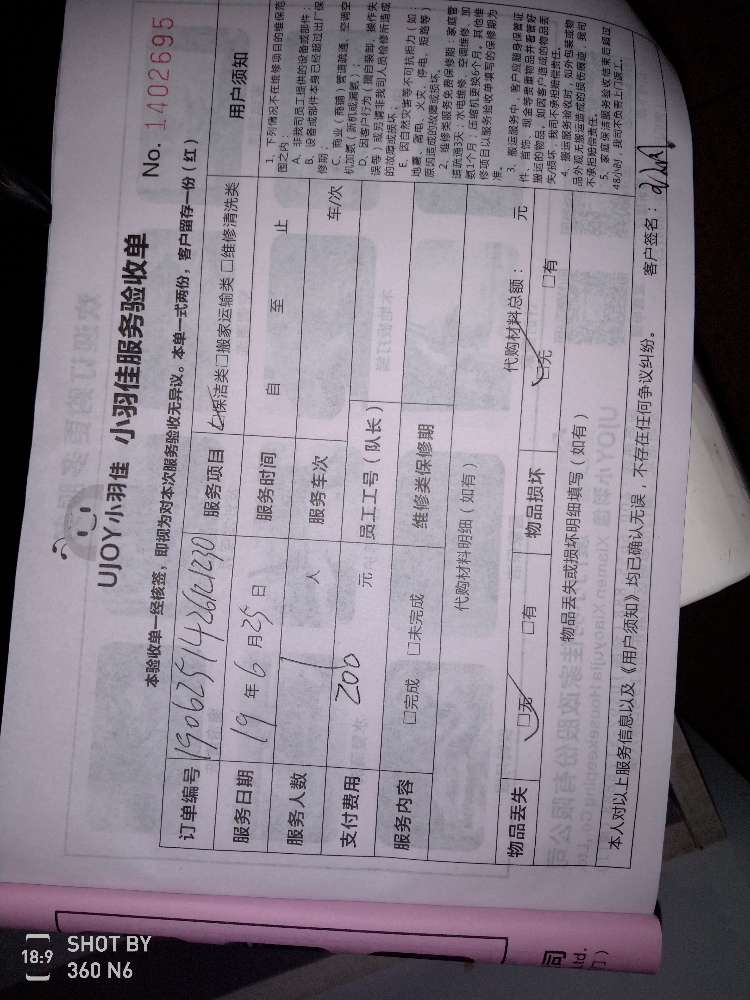 UJOY小羽佳 小羽佳服务验收单
No. 1402695
本验收单一经核签，即视为对本次服务验收无异议。本单一式两份，客户留存一份（红）
订单编号 服务项目 保洁类□搬家运输类□维修清洗类
服务日期 19年6月25日 服务时间 自 至 止
服务人数 1 人 服务车次 车/次
支付费用 200 元 员工工号（队长）
服务内容 □完成 □未完成 维修类保修期
代购材料明细（如有） 代购材料总额： 元
物品丢失 □无 □有 物品损坏 □无 □有
物品丢失或损坏明细填写（如有）
本人对以上服务信息以及《用户须知》均已确认无误，不存在任何争议纠纷。 客户签名：
用户须知
1、下列情况不在维修项目的维保范
围之内：
A、非我司员工提供的设备或部件；
B、设备或部件本身已经超过出厂保
修期；
C、商业（商铺）管道疏通、空调空
机加氨（新机或漏氨）；
D、因客户行为（擅自装卸、操作失
误等）或另请非我司人员检修所造成
的故障或损坏；
E、因自然灾害等不可抗拒力（如：
地震、雷电、火灾、停电、短路等）
原因造成的故障或损坏。
2、维修类服务免费保修期：家庭管
道疏通3天；水电维修、空调维修、加
氨1个月；压缩机更换6个月。其他维
修项目以服务验收单填写的保修期为
准。
3、搬运服务中，客户应随身保管证
件、首饰、现金等贵重物品并看管好
搬运的物品，如因客户造成的物品丢
失/损坏，我司不承担赔偿责任。
4、搬运服务验收时，如外包装或物
品外观无搬运造成的损伤痕迹，我司
不承担赔偿责任。
5、家庭保洁服务验收结束后超过
48小时，我司不负责上门返工。
SHOT BY
360 N6
18:9